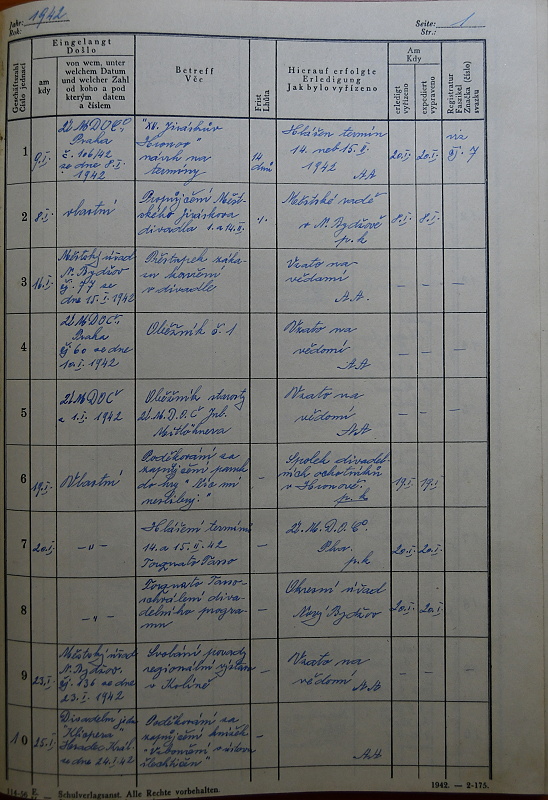 Jahr: 1942 Seite: 1
Rok: Str.:
Geschäftszahl
Číslo jednací
Eingelangt
Došlo
am
kdy
von wem, unter
welchem Datum
und welcher Zahl
od koho a pod
kterým datem
a číslem
Betreff
Věc
Frist
Lhůta
Hierauf erfolgte
Erledigung
Jak bylo vyřízeno
Am
Kdy
erledigt
vyřízeno
expediert
vypraveno
Registratur
Faszikel
Značka (číslo)
svazku
1
9.I.
ÚMDOČ
Praha
č. 106/42
ze dne 8.I.
1942
"XV. Jiráskův
Hronov"
návrh na
termíny
14 dnů
Hlášen termín
14. neb 15.II.
1942
AA
20.I. 20.I.
viz
čj. 7
2
8.I.
vlastní
Propůjčení Měst-
ského Jiráskova
divadla 1. a 14.II.
Městské radě
v N. Bydžově
p.k
8.I. 8.I.
3
16.I.
Městský úřad
N. Bydžov
čj. 77 ze
dne 15.I.1942
Přestupek záka-
zu kouření
v divadle
Vzato na
vědomí
A.A.
4
ÚMDOČ
Praha
čj 60 ze dne
1942
Oběžník č. 1
Vzato na
vědomí
AA
5
ÚMDOČ
z 1.I. 1942
Oběžník starosty
Ú.M.D.O.Č
Vzato na
vědomí
AA
6
19.I.
Vlastní
Poděkování za
zapůjčení paruk
do hry
Spolek divadel-
ních ochotníků
v Hronově.
p.k
19.I 19.I
7
20.I.
-"-
Hlášení termínu
14. a 15.II.42
Torquato Tasso
Ú.M.D.O.Č.
Pha.
p.k
20.I. 20.I.
8
-"-
Torquato Tasso-
schválení diva-
delního progra-
mu
Okresní úřad
Nový Bydžov
20.I. 20.I.
9
23.I.
Městský úřad
N. Bydžov.
čj. 836 ze dne
23.I. 1942
Svolání porady
regionální výstavy
v Kolíně
Vzato na
vědomí
AA
10
25.I.
Divadelní jedn.
"Klicpera"
Hradec Král.
ze dne 24.I.42
Poděkování za
zapůjčení knížek
AA
114-56 E. — Schulverlagsanst. Alle Rechte vorbehalten. 1942. — 2-175.